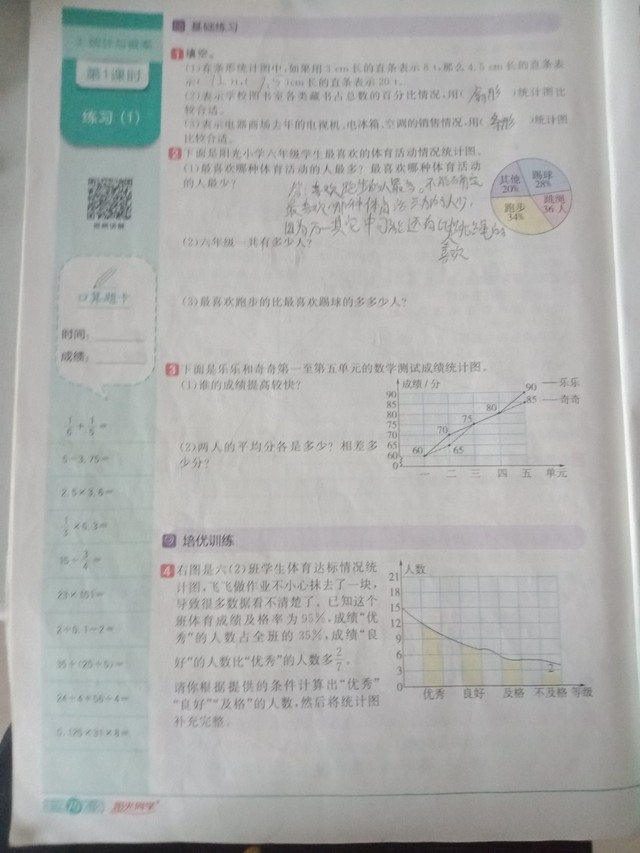 基础练习
第1课时
练习(1)
视频讲解
口算题卡
时间:
成绩:
1/6+1/5=
5-3.75=
2.5×3.6=
1/3×6.3=
23×101=
2÷0.1-2=
35÷(25÷5)=
24÷4+56÷4=
0.125×31×8=
1 填空。
(1)在条形统计图中,如果用3 cm长的直条表示8 t,那么4.5 cm长的直条表
示( )t,( )cm长的直条表示20 t。
(2)表示学校图书室各类藏书占总数的百分比情况,用( 扇形 )统计图比
较合适。
(3)表示电器商场去年的电视机、电冰箱、空调的销售情况,用( 条形 )统计图
比较合适。
2 下面是阳光小学六年级学生最喜欢的体育活动情况统计图。
(1)最喜欢哪种体育活动的人最多?最喜欢哪种体育活动
的人最少?
答:喜欢跑步的人最多。不能确定
最喜欢哪种体育活动的人最少,
因为
其它
可能还有比
跳绳
喜欢
其他 20%
踢球 28%
跳绳 36人
跑步 34%
(2)六年级一共有多少人?
(3)最喜欢跑步的比最喜欢踢球的多多少人?
3 下面是乐乐和奇奇第一至第五单元的数学测试成绩统计图。
(1)谁的成绩提高较快?
(2)两人的平均分各是多少?相差多
少分?
成绩/分
90
85
80
75
70
65
60
0
60
70
65
75
80
90
85
乐乐
奇奇
一 二 三 四 五 单元
培优训练
4 右图是六(2)班学生体育达标情况统
计图,飞飞做作业不小心抹去了一块,
导致很多数据看不清楚了。已知这个
班体育成绩及格率为95%,成绩“优
秀”的人数占全班的35%,成绩“良
好”的人数比“优秀”的人数多2/7。
请你根据提供的条件计算出“优秀”
“良好”“及格”的人数,然后将统计图
补充完整。
人数
21
18
15
12
9
6
3
0
2
优秀 良好 及格 不及格 等级
76
阳光同学